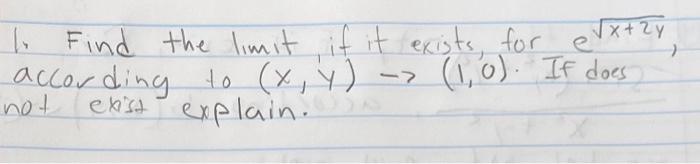 1. Find the limit, if it exists, for e^√x+2y,
according to (x, y) -> (1,0). If does
not exist explain.